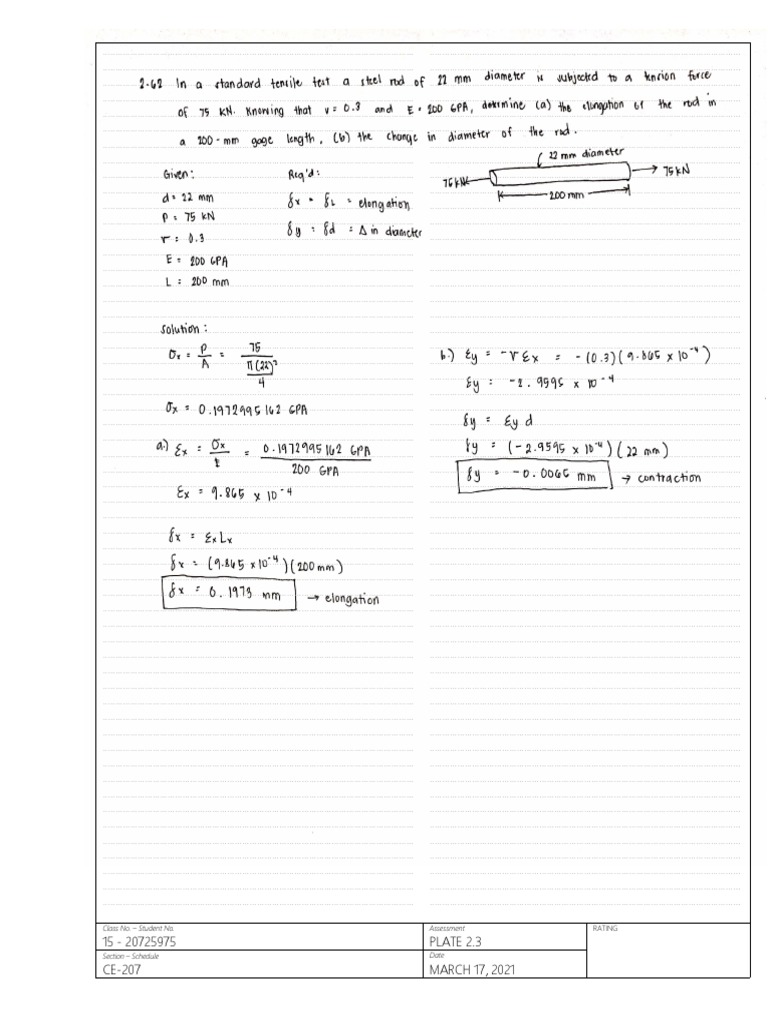 2-62 In a standard tensile test a steel rod of 22 mm diameter is subjected to a tension force
of 75 kN. Knowing that v = 0.3 and E = 200 GPA, determine (a) the elongation of the rod in
a 200-mm gage length, (b) the change in diameter of the rod.
Given:
d = 22 mm
P = 75 kN
v = 0.3
E = 200 GPA
L = 200 mm
Req'd:
δx = δL = elongation
δy = δd = Δ in diameter
22 mm diameter
75 kN
75 kN
200 mm
Solution:
σx = P/A = 75 / (π(22)²/4)
σx = 0.1972995162 GPA
a.) εx = σx/E = 0.1972995162 GPA / 200 GPA
εx = 9.865 x 10⁻⁴
δx = εxLx
δx = (9.865 x 10⁻⁴)(200 mm)
δx = 0.1973 mm → elongation
b.) εy = -vεx = -(0.3)(9.865 x 10⁻⁴)
εy = -2.9595 x 10⁻⁴
δy = εy d
δy = (-2.9595 x 10⁻⁴)(22 mm)
δy = -0.0065 mm → contraction
Class No. – Student No.
15 - 20725975
Section – Schedule
CE-207
Assessment
PLATE 2.3
Date
MARCH 17, 2021
RATING